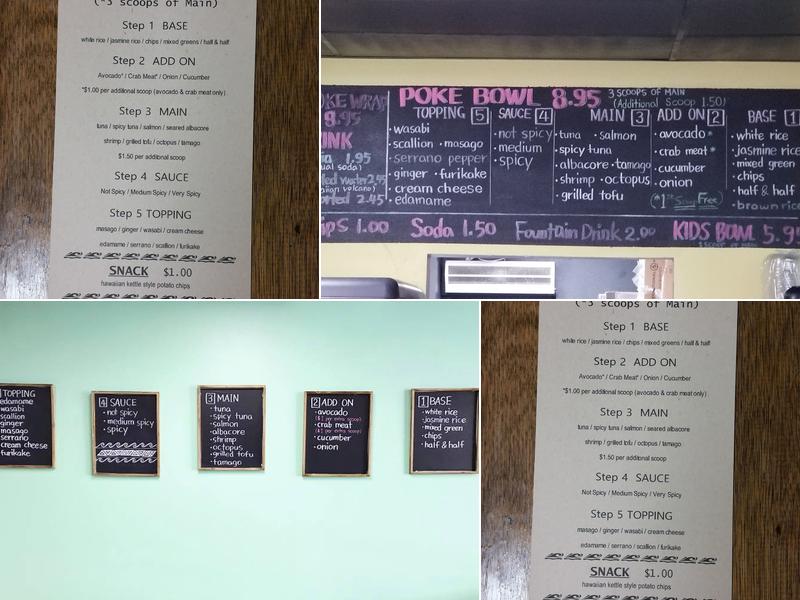 (*3 scoops of Main)
Step 1 BASE
white rice / jasmine rice / chips / mixed greens / half & half
Step 2 ADD ON
Avocado* / Crab Meat* / Onion / Cucumber
*$1.00 per additional scoop (avocado & crab meat only)
Step 3 MAIN
tuna / spicy tuna / salmon / seared albacore
shrimp / grilled tofu / octopus / tamago
$1.50 per additional scoop
Step 4 SAUCE
Not Spicy / Medium Spicy / Very Spicy
Step 5 TOPPING
masago / ginger / wasabi / cream cheese
edamame / serrano / scallion / furikake
SNACK $1.00
hawaiian kettle style potato chips
OKE WRAP
9.95
1.95
2.45
POKE BOWL 8.95
3 SCOOPS OF MAIN
(Additional Scoop 1.50)
TOPPING 5
wasabi
scallion · masago
serrano pepper
ginger · furikake
cream cheese
edamame
SAUCE 4
not spicy
medium
spicy
MAIN 3
tuna · salmon
spicy tuna
albacore · tamago
shrimp · octopus
grilled tofu
ADD ON 2
avocado*
crab meat*
cucumber
onion
BASE 1
white rice
jasmine rice
mixed green
chips
half & half
brown rice
1.00 Soda 1.50 Fountain Drink 2.00 KIDS BOWL 5.95
TOPPING
edamame
wasabi
scallion
ginger
masago
serrano
cream cheese
furikake
4 SAUCE
· not spicy
· medium spicy
· spicy
3 MAIN
· tuna
· spicy tuna
· salmon
· albacore
· shrimp
· octopus
· grilled tofu
· tamago
2 ADD ON
· avocado
($1 per extra scoop)
· crab meat
($1 per extra scoop)
· cucumber
· onion
1 BASE
· white rice
· jasmine rice
· mixed green
· chips
· half & half
(*3 scoops of Main)
Step 1 BASE
white rice / jasmine rice / chips / mixed greens / half & half
Step 2 ADD ON
Avocado* / Crab Meat* / Onion / Cucumber
*$1.00 per additional scoop (avocado & crab meat only)
Step 3 MAIN
tuna / spicy tuna / salmon / seared albacore
shrimp / grilled tofu / octopus / tamago
$1.50 per additional scoop
Step 4 SAUCE
Not Spicy / Medium Spicy / Very Spicy
Step 5 TOPPING
masago / ginger / wasabi / cream cheese
edamame / serrano / scallion / furikake
SNACK $1.00
hawaiian kettle style potato chips